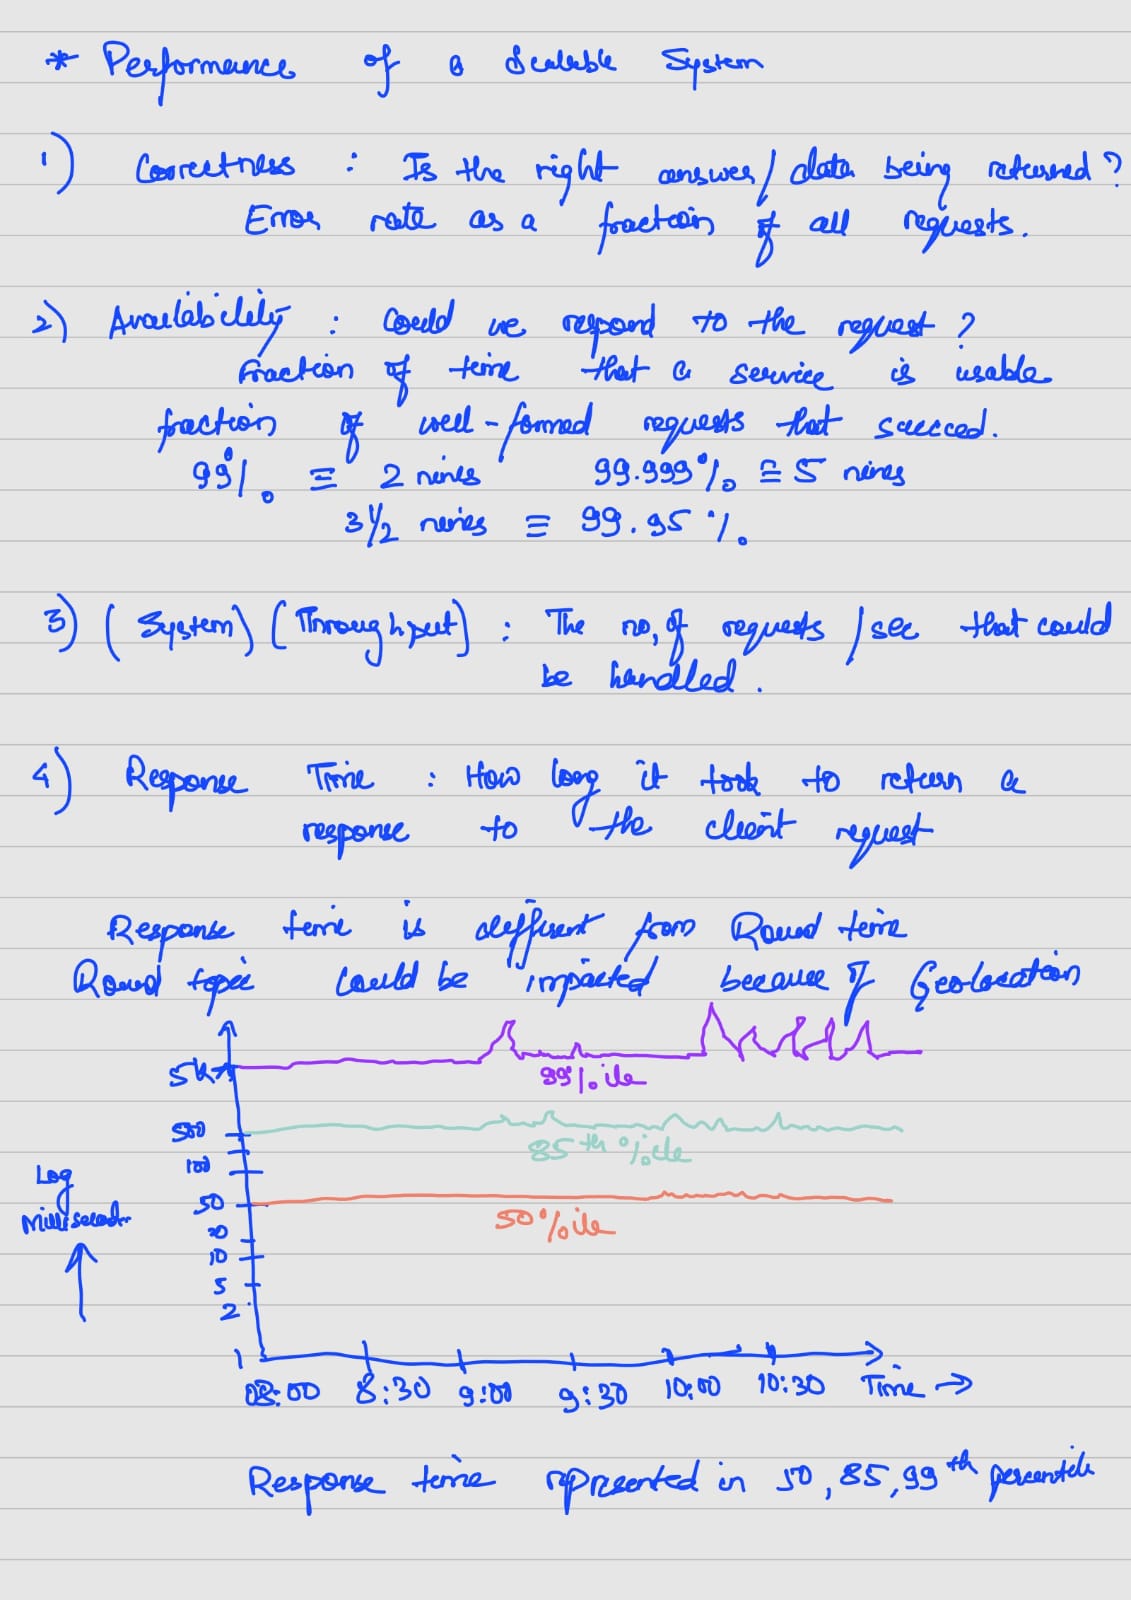 * Performance of a Scalable System
1) Correctness : Is the right answer/data being returned?
Error rate as a fraction of all requests.
2) Availability : Could we respond to the request?
Fraction of time that a service is usable
fraction of well-formed requests that succeed.
99% ≡ 2 nines 99.999% ≅ 5 nines
3 1/2 nines ≡ 99.95 %.
3) (System) (Throughput) : The no. of requests /sec that could
be handled.
4) Response Time : How long it took to return a
response to the client request
Response time is different from Round time
Round could be impacted because of Geolocation
5k
99%ile
500
85th %ile
100
Log
Millisecond
50
50%ile
20
10
5
2
1
08:00 8:30 9:00 9:30 10:00 10:30 Time →
Response time represented in 50, 85, 99th percentile